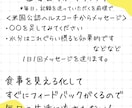 ・毎日、記録を送っていただく前提で
<米国公認ヘルスコーチからメッセージ>
・〇〇を足してみてください
・水分はこれぐらい摂ると効果的です
などなど
1日1回メッセージを送ります。
食事を見える化して
すぐにフィードバックがくるので